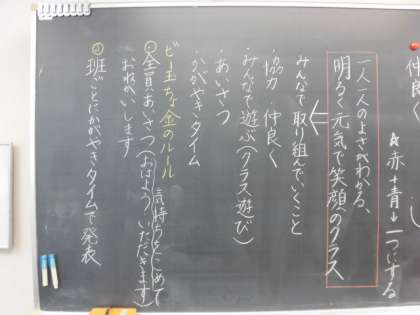 仲良く
☆赤+青↓一つにする
一人一人のよさがわかる、
明るく元気で笑顔のクラス
みんなで取り組んでいくこと
・協力 仲良く
・みんなで遊ぶ(クラス遊び)
・あいさつ
・かがやきタイム
ビー玉ちょ金のルール
気持ちをこめて
・全員あいさつ(おはよう いただきます)
おねがいします
②班ごとにかがやきタイムで発表